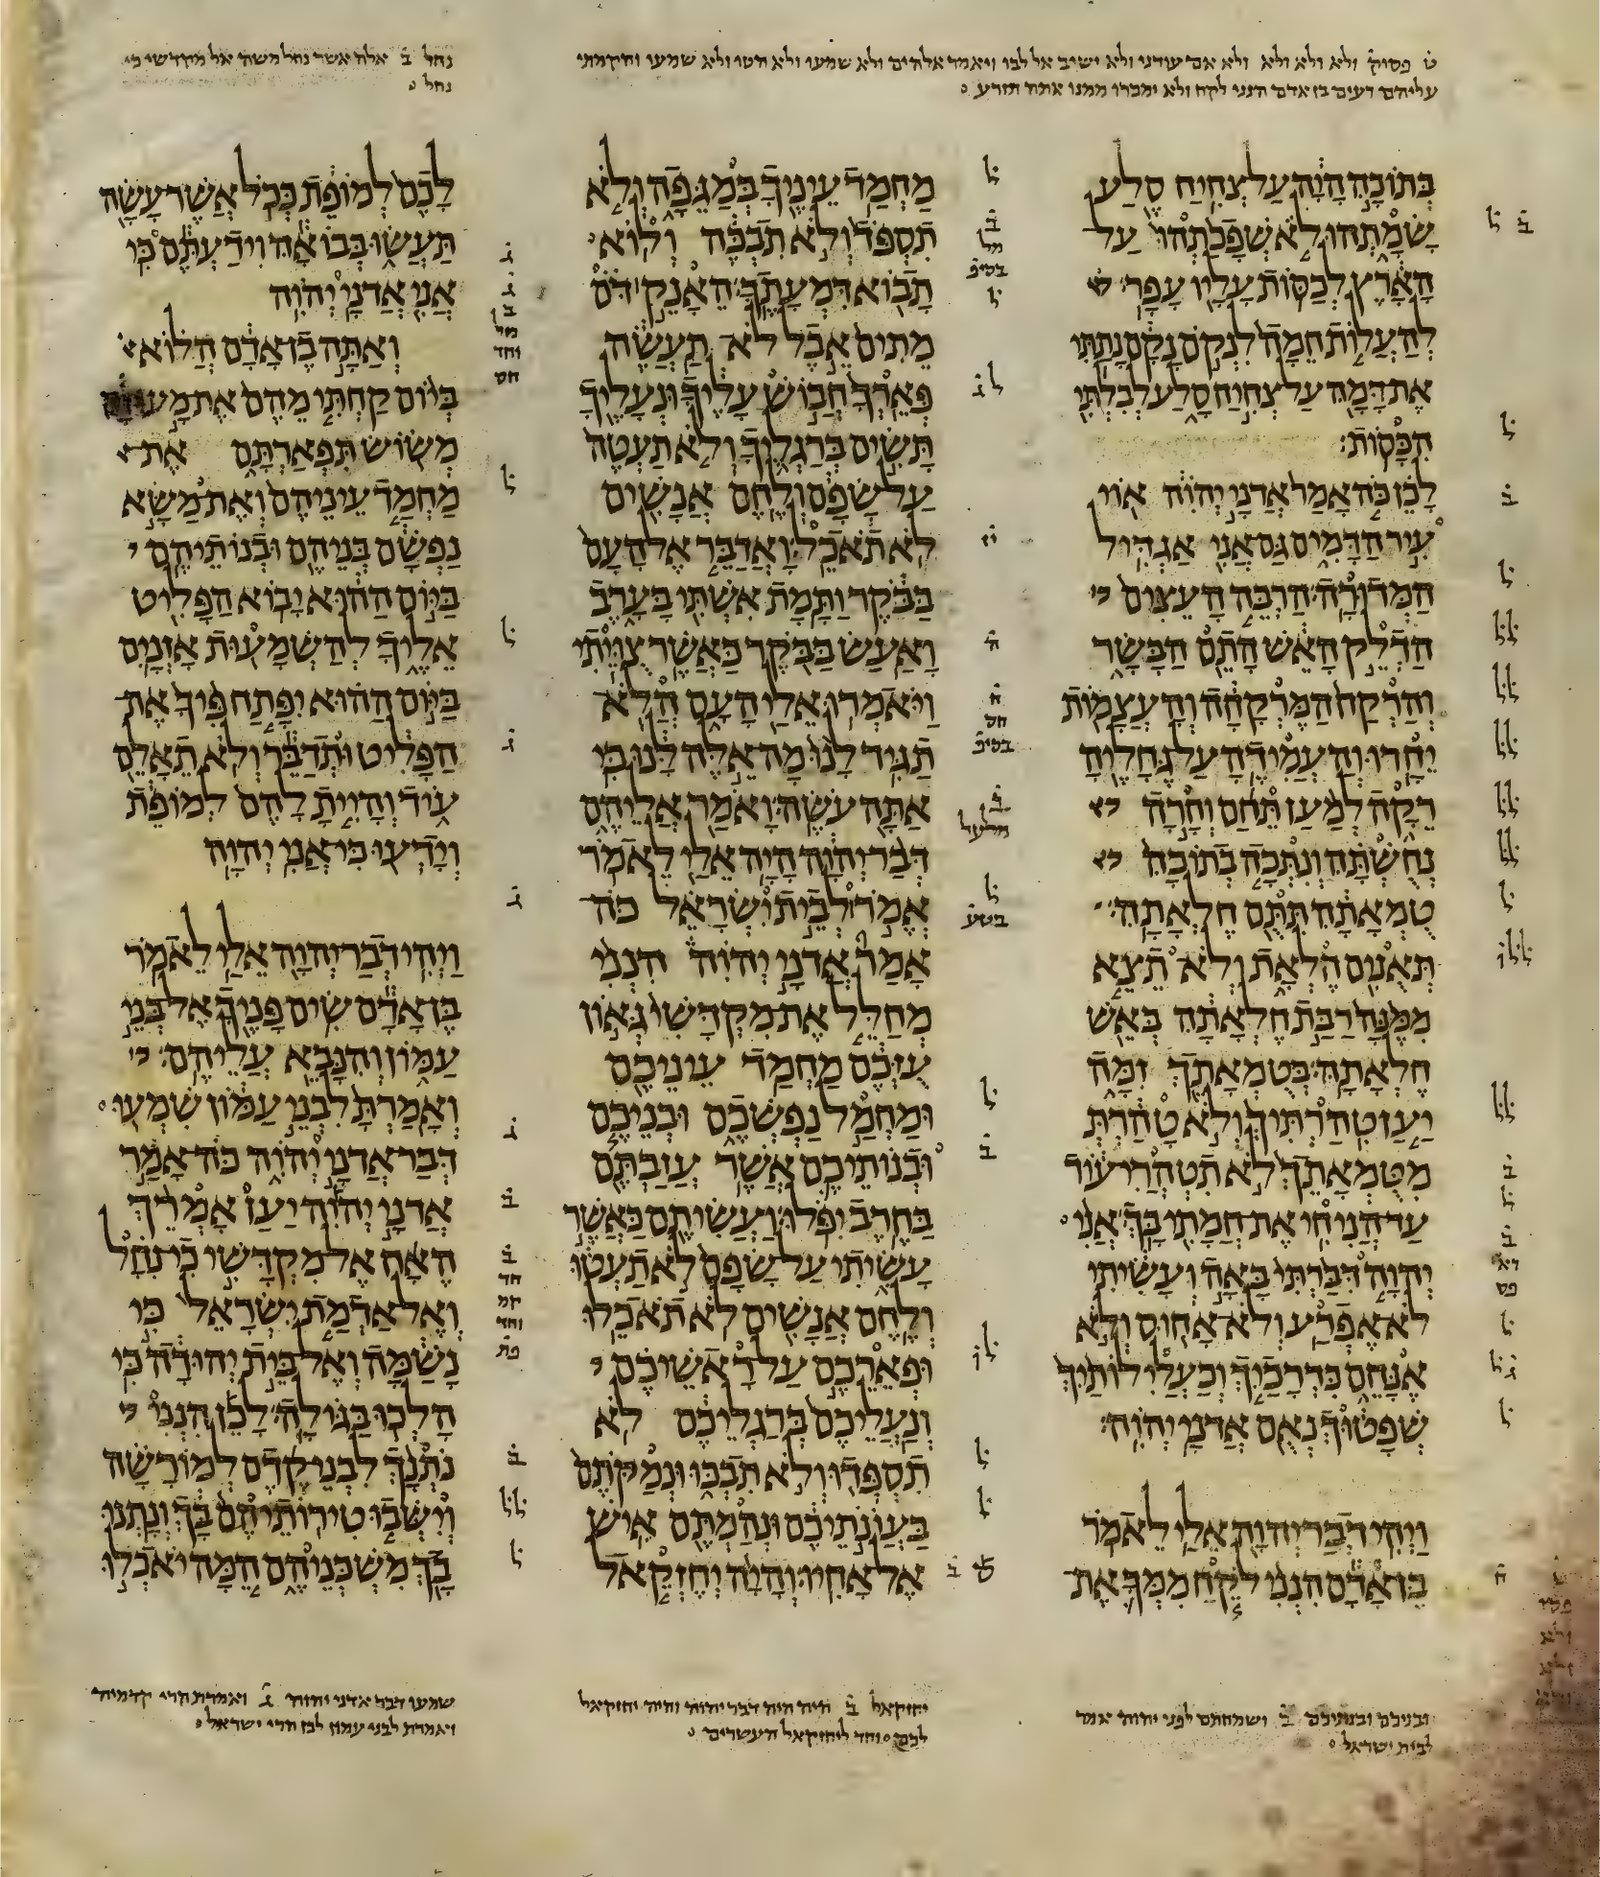 ט̇ פסוק ולא ולא ולא ולא אם עודני ולא ישיב אל לבו ויאמר אלהים ולא שמעו ולא הטו ולא שמעו והקמתי
עליהם רעים בן אדם הנני לקח ולא ימכרו ממנו אתה תזרע
נחל ב̇ אלה אשר נחל משה אל מקדשי כי
נחל
בְּתוֹכָהּ הָיָה עַל צְחִיחַ סֶלַע
שָׂמָתְהוּ לֹא שְׁפָכַתְהוּ עַל
הָאָרֶץ לְכַסּוֹת עָלָיו עָפָר׃
לְהַעֲלוֹת חֵמָה לִנְקֹם נָקָם נָתַתִּי
אֶת דָּמָהּ עַל צְחִיחַ סָלַע לְבִלְתִּי
הִכָּסוֹת׃
לָכֵן כֹּה אָמַר אֲדֹנָי יְהוִה אוֹי
עִיר הַדָּמִים גַּם אֲנִי אַגְדִּיל
הַמְּדוּרָה׃ הַרְבֵּה הָעֵצִים
הַדְלֵק הָאֵשׁ הָתֵם הַבָּשָׂר
וְהַרְקַח הַמֶּרְקָחָה וְהָעֲצָמוֹת
יֵחָרוּ׃ וְהַעֲמִידֶהָ עַל גֶּחָלֶיהָ
רֵקָה לְמַעַן תֵּחַם וְחָרָה
נְחֻשְׁתָּהּ וְנִתְּכָה בְתוֹכָהּ
טֻמְאָתָהּ תִּתֻּם חֶלְאָתָהּ׃
תְּאֻנִים הֶלְאָת וְלֹא תֵצֵא
מִמֶּנָּה רַבַּת חֶלְאָתָהּ בְּאֵשׁ
חֶלְאָתָהּ׃ בְּטֻמְאָתֵךְ זִמָּה
יַעַן טִהַרְתִּיךְ וְלֹא טָהַרְתְּ
מִטֻּמְאָתֵךְ לֹא תִטְהֲרִי עוֹד
עַד הֲנִיחִי אֶת חֲמָתִי בָּךְ׃ אֲנִי
יְהוָה דִּבַּרְתִּי בָּאָה וְעָשִׂיתִי
לֹא אֶפְרַע וְלֹא אָחוּס וְלֹא
אֶנָּחֵם כִּדְרָכַיִךְ וְכַעֲלִילוֹתַיִךְ
שְׁפָטוּךְ נְאֻם אֲדֹנָי יְהוִה׃
וַיְהִי דְבַר יְהוָה אֵלַי לֵאמֹר
בֶּן אָדָם הִנְנִי לֹקֵחַ מִמְּךָ אֶת
מַחְמַד עֵינֶיךָ בְּמַגֵּפָה וְלֹא
תִסְפֹּד וְלֹא תִבְכֶּה וְלוֹא
תָבוֹא דִּמְעָתֶךָ׃ הֵאָנֵק דֹּם
מֵתִים אֵבֶל לֹא תַעֲשֶׂה
פְּאֵרְךָ חֲבוֹשׁ עָלֶיךָ וּנְעָלֶיךָ
תָּשִׂים בְּרַגְלֶיךָ וְלֹא תַעְטֶה
עַל שָׂפָם וְלֶחֶם אֲנָשִׁים
לֹא תֹאכֵל׃ וָאֲדַבֵּר אֶל הָעָם
בַּבֹּקֶר וַתָּמָת אִשְׁתִּי בָּעָרֶב
וָאַעַשׂ בַּבֹּקֶר כַּאֲשֶׁר צֻוֵּיתִי
וַיֹּאמְרוּ אֵלַי הָעָם הֲלֹא
תַגִּיד לָנוּ מָה אֵלֶּה לָּנוּ כִּי
אַתָּה עֹשֶׂה׃ וָאֹמַר אֲלֵיהֶם
דְּבַר יְהוָה הָיָה אֵלַי לֵאמֹר
אֱמֹר לְבֵית יִשְׂרָאֵל כֹּה
אָמַר אֲדֹנָי יְהוִה הִנְנִי
מְחַלֵּל אֶת מִקְדָּשִׁי גְּאוֹן
עֻזְּכֶם מַחְמַד עֵינֵיכֶם
וּמַחְמַל נַפְשְׁכֶם וּבְנֵיכֶם
וּבְנוֹתֵיכֶם אֲשֶׁר עֲזַבְתֶּם
בַּחֶרֶב יִפֹּלוּ׃ וַעֲשִׂיתֶם כַּאֲשֶׁר
עָשִׂיתִי עַל שָׂפָם לֹא תַעְטוּ
וְלֶחֶם אֲנָשִׁים לֹא תֹאכֵלוּ
וּפְאֵרֵכֶם עַל רָאשֵׁיכֶם
וְנַעֲלֵיכֶם בְּרַגְלֵיכֶם לֹא
תִסְפְּדוּ וְלֹא תִבְכּוּ וּנְמַקֹּתֶם
בַּעֲוֺנֹתֵיכֶם וּנְהַמְתֶּם אִישׁ
אֶל אָחִיו׃ וְהָיָה יְחֶזְקֵאל
לָכֶם לְמוֹפֵת כְּכֹל אֲשֶׁר עָשָׂה
תַּעֲשׂוּ בְּבוֹאָהּ וִידַעְתֶּם כִּי
אֲנִי אֲדֹנָי יְהוִה
וְאַתָּה בֶן אָדָם הֲלוֹא
בְּיוֹם קַחְתִּי מֵהֶם אֶת מָעוּזָּם
מְשׂוֹשׂ תִּפְאַרְתָּם אֶת
מַחְמַד עֵינֵיהֶם וְאֶת מַשָּׂא
נַפְשָׁם בְּנֵיהֶם וּבְנוֹתֵיהֶם
בַּיּוֹם הַהוּא יָבוֹא הַפָּלִיט
אֵלֶיךָ לְהַשְׁמָעוּת אָזְנָיִם
בַּיּוֹם הַהוּא יִפָּתַח פִּיךָ אֶת
הַפָּלִיט וּתְדַבֵּר וְלֹא תֵאָלֵם
עוֹד וְהָיִיתָ לָהֶם לְמוֹפֵת
וְיָדְעוּ כִּי אֲנִי יְהוָה
וַיְהִי דְבַר יְהוָה אֵלַי לֵאמֹר
בֶּן אָדָם שִׂים פָּנֶיךָ אֶל בְּנֵי
עַמּוֹן וְהִנָּבֵא עֲלֵיהֶם׃
וְאָמַרְתָּ לִבְנֵי עַמּוֹן שִׁמְעוּ
דְּבַר אֲדֹנָי יְהוִה כֹּה אָמַר
אֲדֹנָי יְהוִה יַעַן אָמְרֵךְ
הֶאָח אֶל מִקְדָּשִׁי כִי נִחָל
וְאֶל אַדְמַת יִשְׂרָאֵל כִּי
נָשַׁמָּה וְאֶל בֵּית יְהוּדָה כִּי
הָלְכוּ בַּגּוֹלָה׃ לָכֵן הִנְנִי
נֹתְנָךְ לִבְנֵי קֶדֶם לְמוֹרָשָׁה
וְיִשְּׁבוּ טִירוֹתֵיהֶם בָּךְ וְנָתְנוּ
בָךְ מִשְׁכְּנֵיהֶם הֵמָּה יֹאכְלוּ
ובניכם ובנתיכם ב̇ ושמחתם לפני יהוה אמר
לבית ישראל
יחזקאל ב̇ היה היה דבר יהוה והיה יחזקאל
לכם וחד ליחזקאל העשרים
שמעו דבר אדני יהוה ג̇ ואמרת הרי קדמיה
ואמרת לבני עמון לכן הרי ישראל